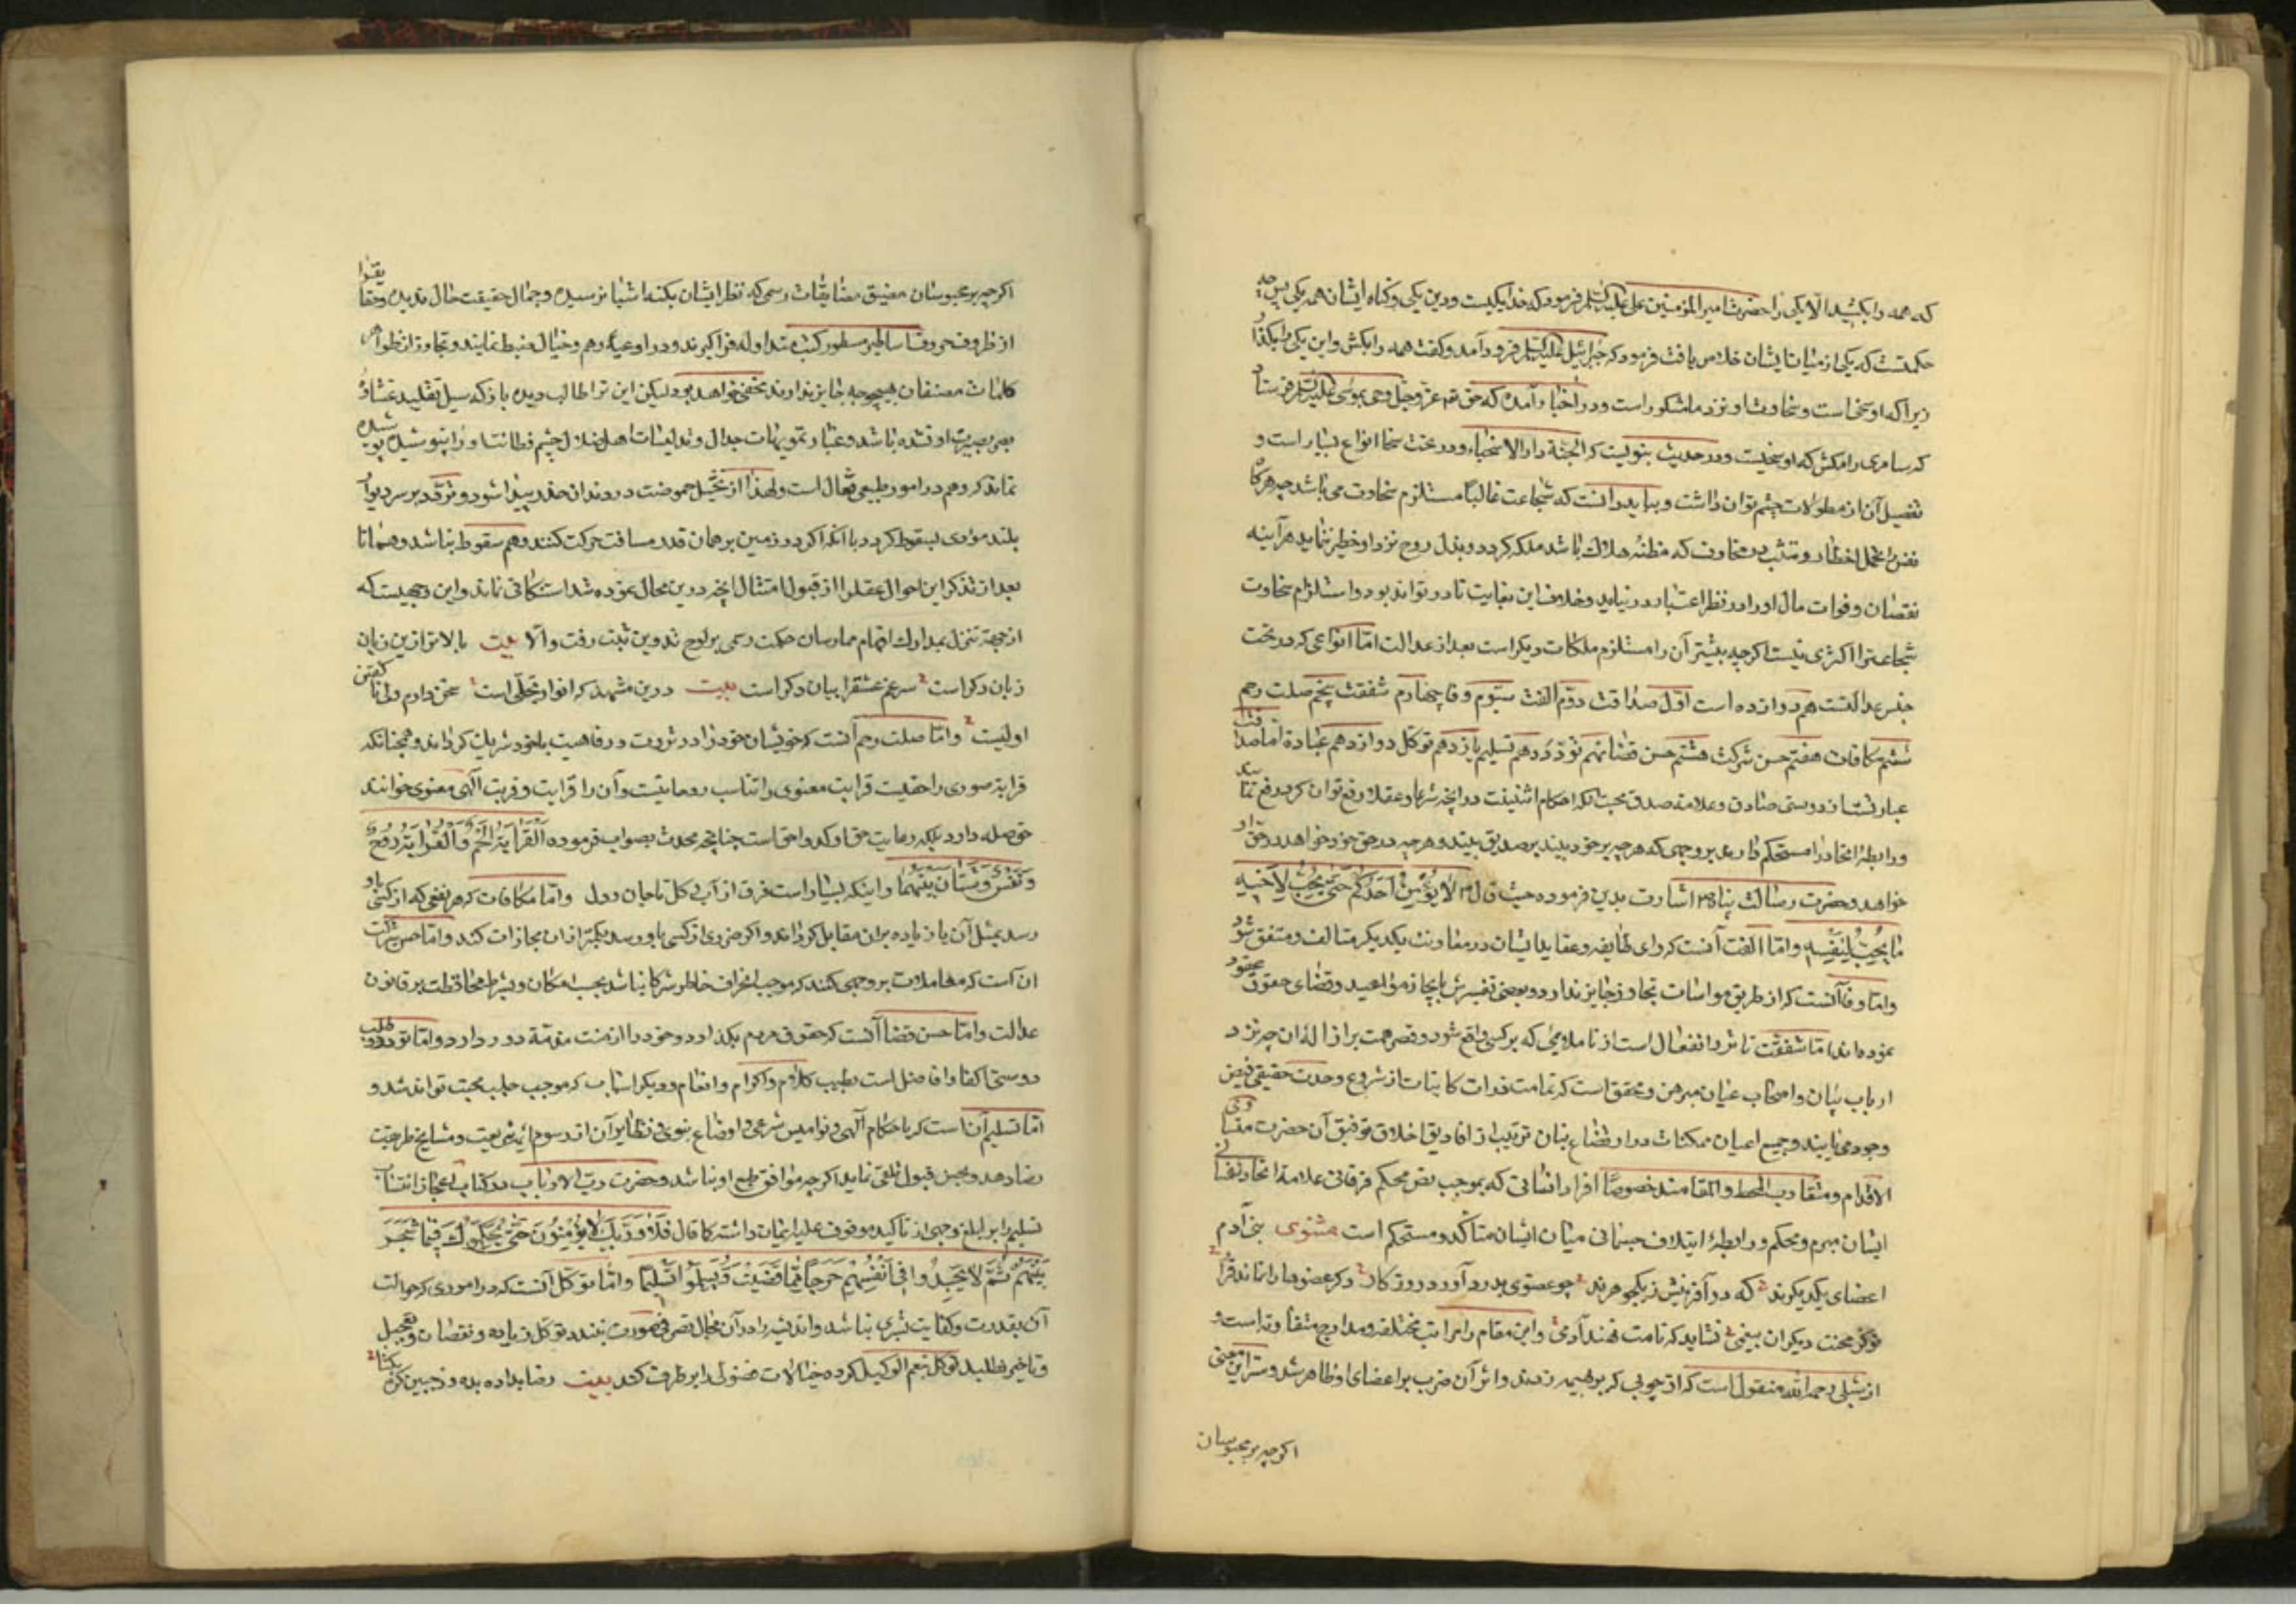 که همه را بکشید الا یکی را حضرت امیر المؤمنین علی علیه السلم فرمود که خدا یکیست و دین یکی و گناه ایشان همه یکی پس چه
حکمتست که یکی از میان ایشان خلاص یافت فرمود که جبرائیل علیه السلم فرود آمد و گفت همه را بکش و این یکی را بگذار
زیرا که او سخیاست و سخاوت او نزد ما مشکور است و در اخبار آمده که حق تع عز و جل وحی بموسی علیه السلم فرستاد
که سامری را مکش که او سخیست و در حدیث نبویست که الجنة دار الاسخیاء و در تحت سخا انواع بسیار است و
تفصیل آن از مطولات چشم توان داشت و بباید دانست که شجاعت غالباً مستلزم سخاوت می باشد چه هرگاه
نفس را تحمل اخطار و تشبث در مخاوف که مظنه هلاک باشد ملکه گردد و بذل روح نزد او خطیر ننماید هرآینه
نقصان و فوات مال او را در نظر اعتبار در نیاید و خلاف این بغایت نادر تواند بود و استلزام سخاوت
شجاعترا اکثری نیست اگرچه بیشتر آن را مستلزم ملکات دیگر است بعد از عدالت اما انواعی که در تحت
جنس عدالتست هم دوازده است اول صداقت دوم الفت سیوم وفا چهارم شفقت پنجم صلت رحم
ششم مکافات هفتم حسن شرکت هشتم حسن قضا نهم تودد دهم تسلیم یازدهم توکل دوازدهم عبادة اما صداقت
عبارتست از دوستی صادق و علامة صدق محبت آنکه احکام اثنینیت در آنچه شرعا و عقلا رفع توان کرد رفع نماید
و رابطه اتحاد را مستحکم دارد بر وجهی که هرچه بر خود بیند بر صدیق بیند و هرچه در حق خود خواهد در حق او
خواهد و حضرت رسالت پناه ص اشارت بدین فرموده حیث قال ص لا یؤمن احدکم حتی یحب لاخیه
ما یحب لنفسه و اما الفت آنست که رای طایفه و عقاید ایشان در معاونت یکدیگر متالف و متفق شود
و اما وفا آنست که از طریق مواسات تجاوز جایز ندارد و بعضی تفسیرش بانجاز مواعید و قضای حقوق عهود
نموده اند اما شفقت تاثر و انفعال است از ناملایمی که بر کسی واقع شود و قصر همت بر ازاله آن چه نزد
ارباب بیان و اصحاب عیان مبرهن و محقق است که تمامت ذوات کاینات از شروع وحدت حقیقی فیض
وجود می یابند و جمیع اعیان ممکنات در ارتضاع بنان تربیب از افاویق اخلاق توفیق آن حضرت متساوی
الاقدام و متقارب الخط و المقامند خصوصاً افراد انسانی که بموجب نص محکم فرقانی علامة اتحاد نفسانی
ایشان مبرم و محکم و رابطه ایتلاف جسمانی میان ایشان متاکد و مستحکم است مثنوی بنی آدم
اعضای یکدیگرند که در آفرینش ز یک جوهرند چو عضوی بدرد آورد روزگار دگر عضوها را نماند قرار
تو کز محنت دیگران بیغمی نشاید که نامت نهند آدمی و این مقام را مراتب مختلفه و مدارج متفاوته است و
از شبلی رحمه الله منقول است که از چوبی که بر بهیمه زدند و اثر آن ضرب بر اعضای او ظاهر شد و سر این معنی
اگرچه بر محبوسان
اگرچه بر محبوسان مضیق مضایقات رسمی که نظر ایشان بکنه اشیا نرسیده و جمال حقیقت حال ندیده و حقایقرا
از ظروف حروف اساطیر مسطور کتب متداوله فرا گیرند و در اوعیه وهم و خیال ضبط نمایند و تجاوز از ظواهر
کلمات مصنفان بهیچوجه جایز ندارند مخفی خواهد بود لیکن این ترا طالب دیده باز که سیل تقلید غشاوه
بصر بصیرت او نشده باشد و غبار تمویهات جدال و تدلیسات اهل ضلال چشم فطانت او را نپوشیده پوشیده
نماند که وهم در امور طبیعی فعال است و لهذا از تخیل حموضت در دندان خدر پیدا شود و تردد بر سر دیوار
بلند مؤدی بسقوط گردد با آنکه اگر در زمین بر همان قدر مسافت حرکت کنند وهم سقوط نباشد و همانا
بعد از تذکر این احوال عقل را از قبول امثال آنچه درین محال نموده شد استنکافی نماند و این وجهیست که
از جهة تنزل بمدارک افهام ممارسان حکمت رسمی بر لوح تدوین ثبت رفت و الا بیت بالاتر ازین زبان
زبان دگر است سر غم عشق را بیان دگر است بیت درین مشهد که انوار تجلی است سخن دارم ولی نا گفتن
اولیست و اما صلت رحم آنست که خویشان خود را در ثروت و رفاهیت با خود شریک گرداند و همچنانکه
قرابة صوری را حقیست قرابت معنوی را تناسب روحانیت و آن را قرابت و قربت الهی معنوی خوانند
حق صله دارد بلکه رعایت حق او کد و احق است چنانچه محدث بصواب فرموده القرابة لحم و القرابة روح
و نفس و شتان بینهما و اینکه بسیار است فرق از آب و گل تا جان و دل و اما مکافات که هر نفعی که از کسی باو
رسد بمثل آن یا زیاده بران مقابل گرداند و اگر ضرری از کسی باو رسد بکمتر ازان مجازات کند و اما حسن شرکت
ان است که معاملات بر وجهی کنند که موجب انحراف خاطر شرکا نباشد بحسب امکان و بشرط محافظت بر قانون
عدالت و اما حسن قضا آنست که حقوق مردم بگذارد و خود را از منت مذمة دور دارد و اما تودد طلب
دوستی اکفا و افاضل است بطیب کلام و اکرام و انعام و دیگر اسباب که موجب جلب محبت تواند شد و
اما تسلیم آن است که باحکام الهی و نوامیس شرعی و اوضاع نبوی و نظایر آن از رسوم ائمه شریعت و مشایخ طریقت
رضا دهد و بحسن قبول تلقی نماید اگرچه موافق طبع او نباشد و حضرت رب الارباب در کتاب اعجاز انتساب
تسلیم را بر ابلغ وجهی از تاکید موقوف علیه ایمان داشته کما قال فلا و ربک لا یؤمنون حتی یحکموک فیما شجر
بینهم ثم لا یجدوا فی انفسهم حرجا مما قضیت و یسلموا تسلیما و اما توکل آنست که در اموری که حوالت
آن بقدرت و کفایت بشری نباشد و اندیشه را در آن مجال تصرفی صورت نبندد توکل زیاده و نقصان و تعجیل
و تاخیر نطلبد توکل بنعم الوکیل کرده خیالات فضولی را بر طرف کند بیت رضا بداده بده وز جبین گره بگشا